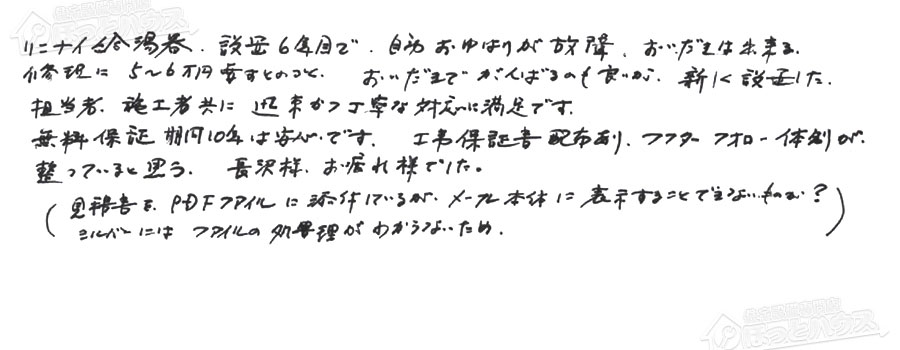 リンナイ給湯器、設置6年目で、自動おゆはりが故障、おいだきは出来る。
修理に5～6万円要すとのこと、おいだきでがんばるのも良いが、新しく設置した。
担当者、施工者共に迅速かつ丁寧な対応に満足です。
無料保証期間10年は安心です。工事保証書配布あり、アフターフォロー体制が、
整っていると思う。長沢様、お疲れ様でした。
(見積書を、PDFファイルに添付しているが、メール本体に表示することできないものか？
シルバーにはファイルの処理がわからないため。)
ほっとハウス
ほっとハウス